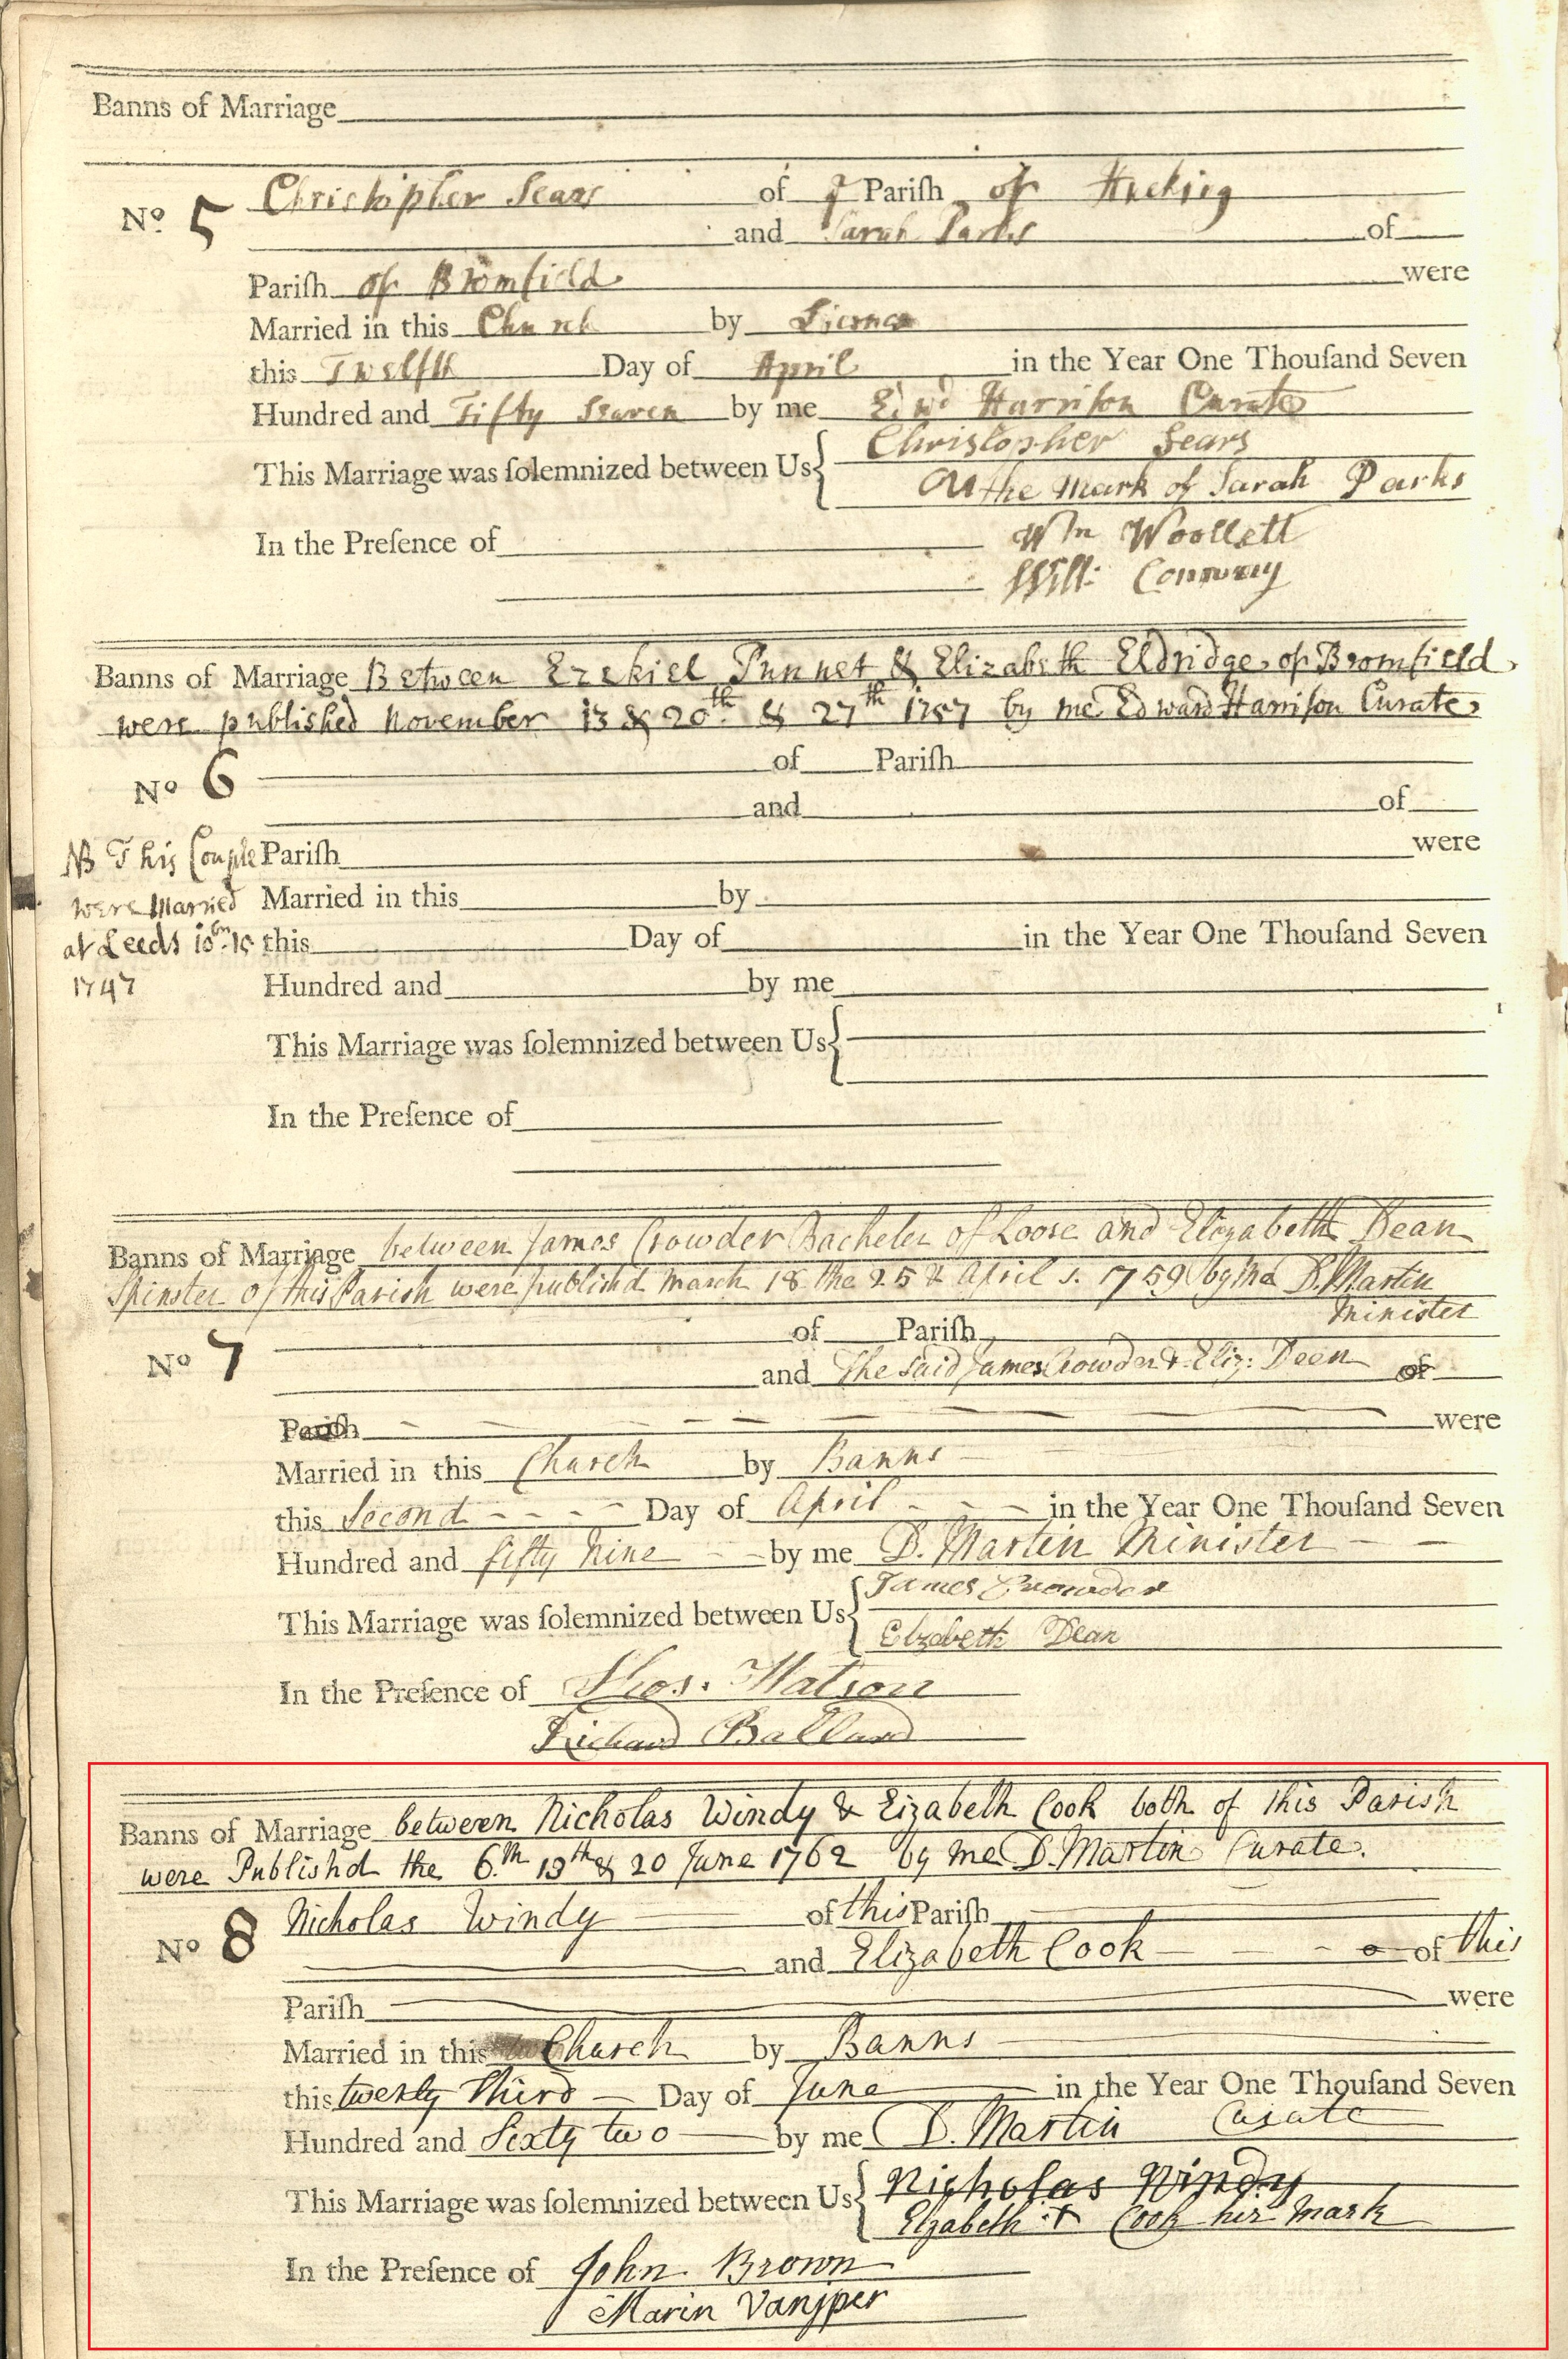 Banns of Marriage
No. 5 Christopher Sears of ye Pariſh of Hucking
and Sarah Parks of
Pariſh of Bromfield were
Married in this Church by
this Twelfth Day of April in the Year One Thouſand Seven
Hundred and Fifty Seaven by me Edwd Harriſon Curate
This Marriage was ſolemnized between Us { Christopher Sears
the Mark of Sarah Parks
In the Preſence of Wm Woollett
Will:
Banns of Marriage Between Ezekiel Punnet & Elizabeth Eldridge of Bromfield
were published November 13 & 20th & 27th 1757 by me Edward Harriſon Curate
No 6 of Pariſh
and of
NB This Couple Pariſh were
were Married Married in this by
at Leeds this Day of in the Year One Thouſand Seven
1747 Hundred and by me
This Marriage was ſolemnized between Us {
In the Preſence of
Banns of Marriage between James Crowder Bacheler of Loose and Elizabeth Dean
Spinster of this Parish were publishd March 18 the 25 & April 1. 1759 by me D. Martin
Minister
of Pariſh
No 7 and The said James Crowder & Eliz: Deen of
Pariſh were
Married in this Church by Banns
this Second Day of April in the Year One Thouſand Seven
Hundred and fifty Nine by me D. Martin Minister
This Marriage was ſolemnized between Us { James Crowder
Elizabeth Dean
In the Preſence of Thos. Watson
Richard Ballard
Banns of Marriage between Nicholas Windy & Elizabeth Cook both of this Parish
were Publishd the 6th 13th & 20 June 1762 by me D. Martin Curate.
No 8 Nicholas Windy of this Pariſh
and Elizabeth Cook of this
Pariſh were
Married in this Church by Banns
this twenty Third Day of June in the Year One Thouſand Seven
Hundred and Sixty two by me D. Martin Curate
This Marriage was ſolemnized between Us { Nicholas Windy
Elzabeth + Cook her Mark
In the Preſence of John Brown
Marin Vanjper